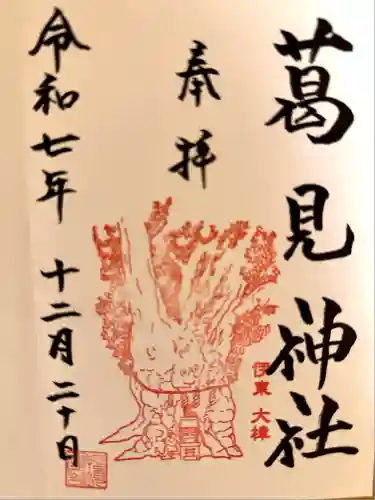 葛見神社
奉拝
伊東 大樟
令和七年 十二月二十日